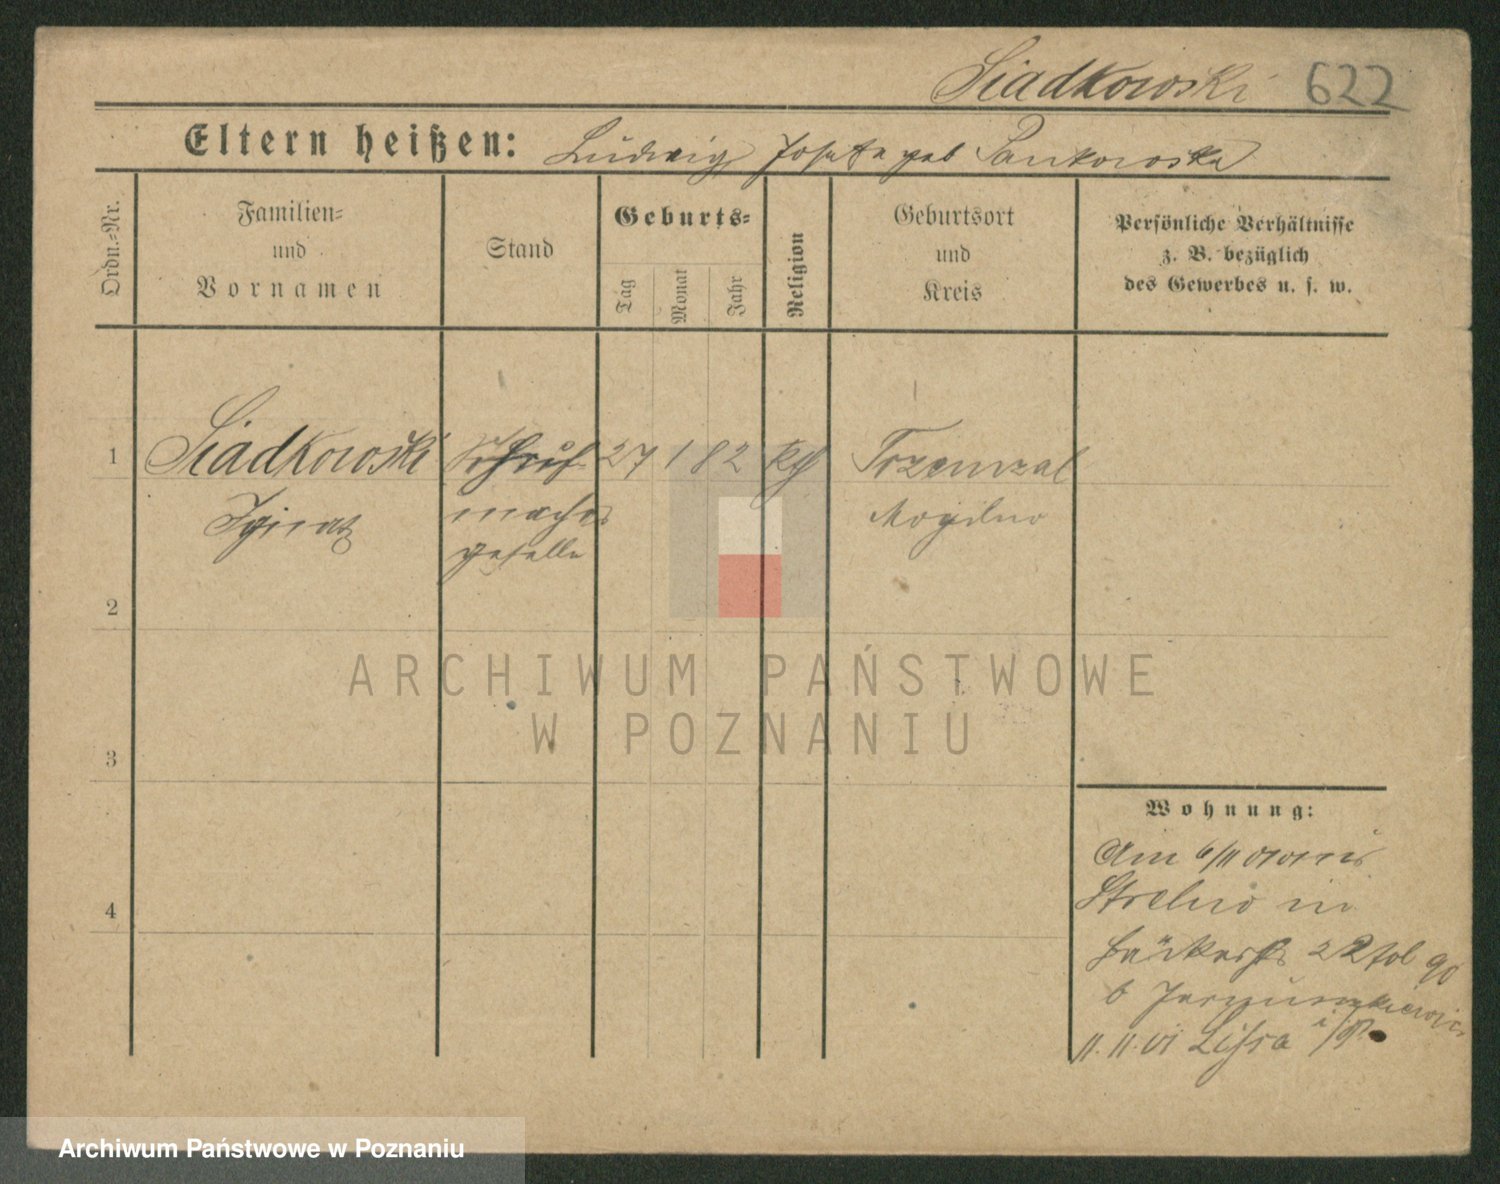 Siadkowski 622
Eltern heißen: Ludwig Josefa geb Pankowska
Ordn.-Nr.
Familien-
und
Vornamen
Stand
Geburts-
Tag
Monat
Jahr
Religion
Geburtsort
und
Kreis
Persönliche Verhältnisse
z. B. bezüglich
des Gewerbes u. s. w.
1 Siadkowski Schuh 27 1 82 kth Trzemzal
Ignatz macher Mogilno
geselle
2
3
4
Wohnung:
Am 6/11 01 von
Strelno in
Bäckerstr 22 fol 90
b Jaruszkiewicz
11.11.01 Lissa i/P.
ARCHIWUM PAŃSTWOWE
W POZNANIU
Archiwum Państwowe w Poznaniu